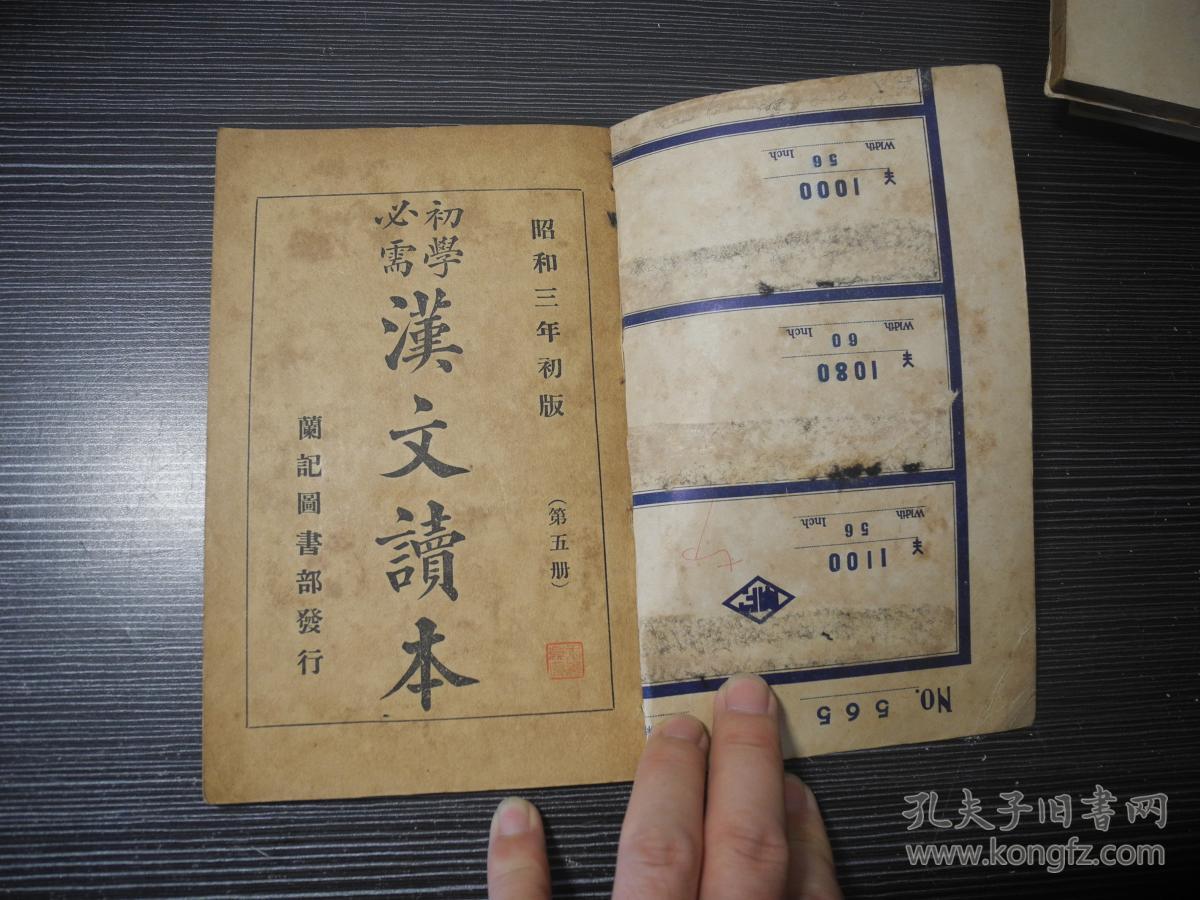 昭和三年初版
（第五册）
初學
必需
漢文讀本
蘭記圖書部發行
No. 565
1100
Width 56 Inch
1080
Width 60 Inch
1000
Width 56 Inch
孔夫子旧书网
www.kongfz.com